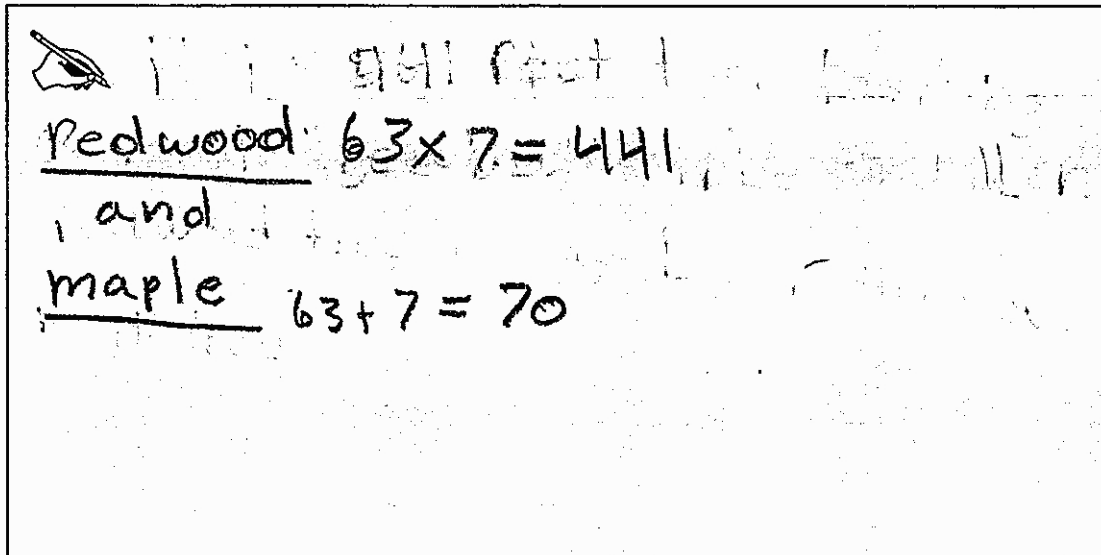 redwood 63 x 7 = 441
and
maple 63 + 7 = 70